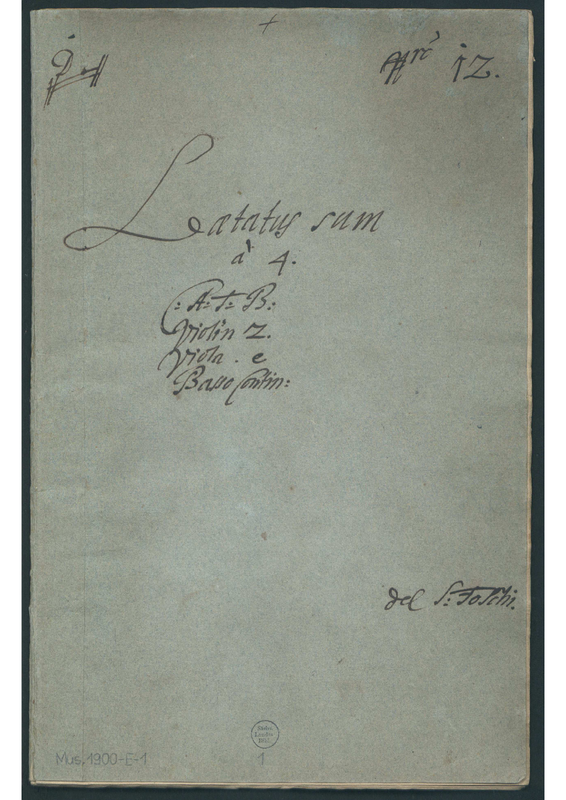 Nro 12.
Lætatus sum
à 4.
C: A: T: B:
Violin 2.
Viola . e
Basso Contin:
del S: Foschi.
Mus. 1900-E-1
1